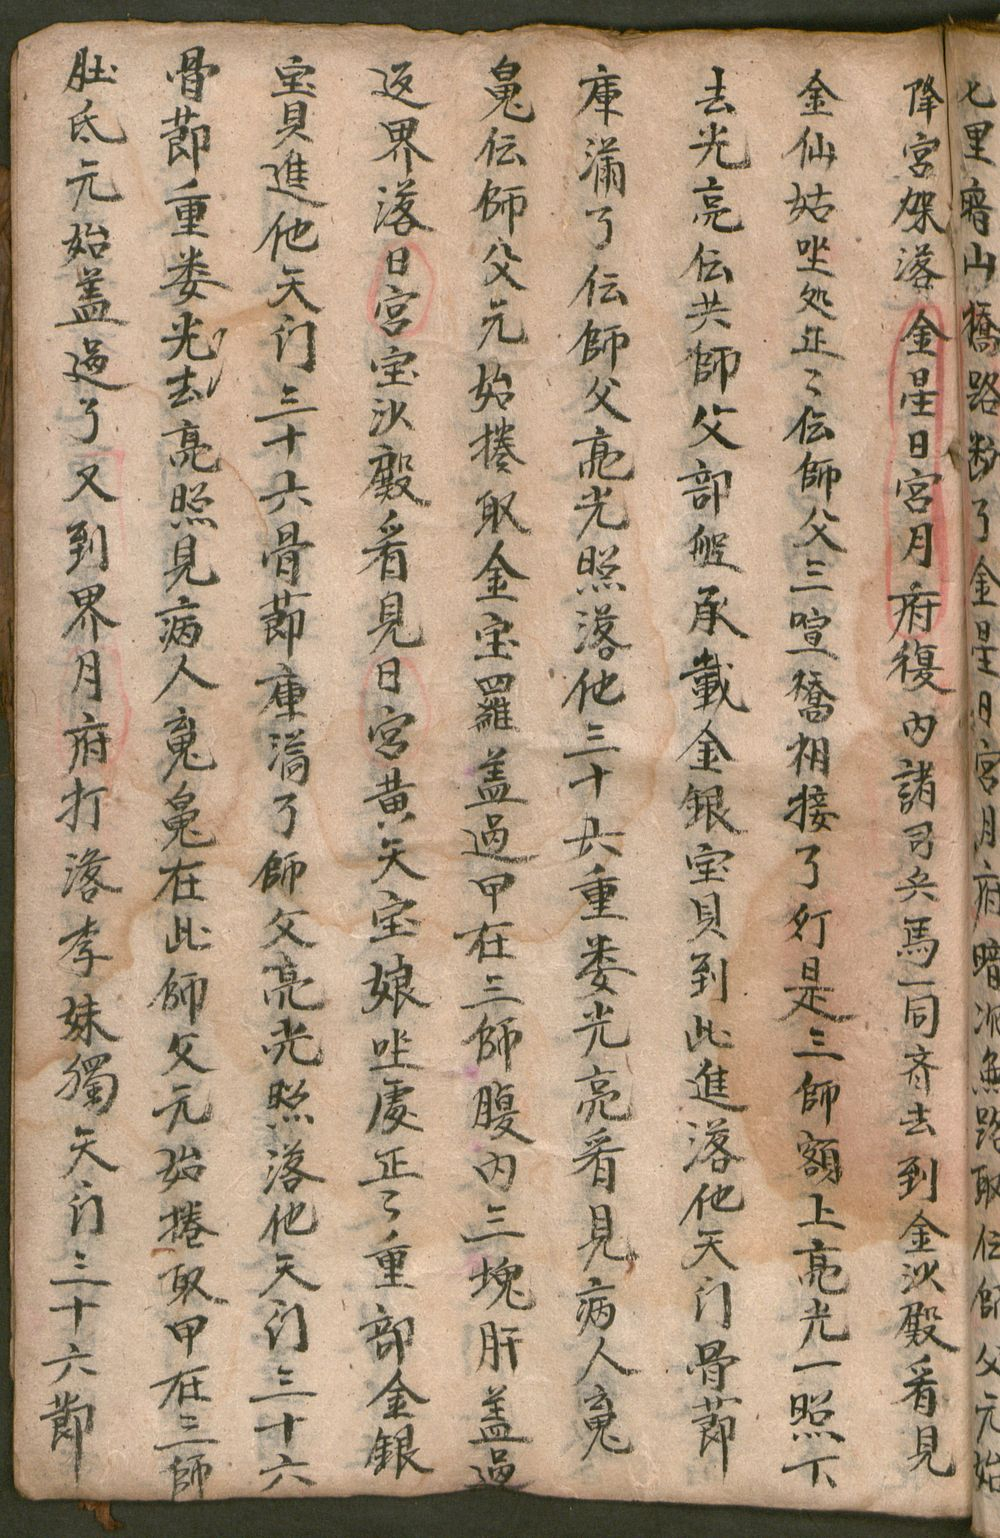 七里暗山橋路粉了金星日宮月府暗派無路取伝師父元始
降宮架落金星日宮月府復內諸司兵馬一同齐去到金沙殿看見
金仙姑坐処正〻伝師父三喧橋相接了行是三師額上亮光一照下
去光亮伝共師父部般承載金銀宝貝到此進落他天门骨節
庫滿了伝師父亮光照落他三十六重娄光亮看見病人䰟
鬼伝師父元始捲取金宝羅盖過甲在三師腹内三塊肝盖過
返界落日宮宝沙殿看見日宮黄天宝娘坐處正〻重部金銀
宝貝進他天门三十六骨節庫滿了師父亮光照落他天门三十六
骨節重娄光去亮照見病人䰟鬼在此師父元始捲取甲在三師
肚氐元始盖過了又到界月府打落李妹獨天门三十六節